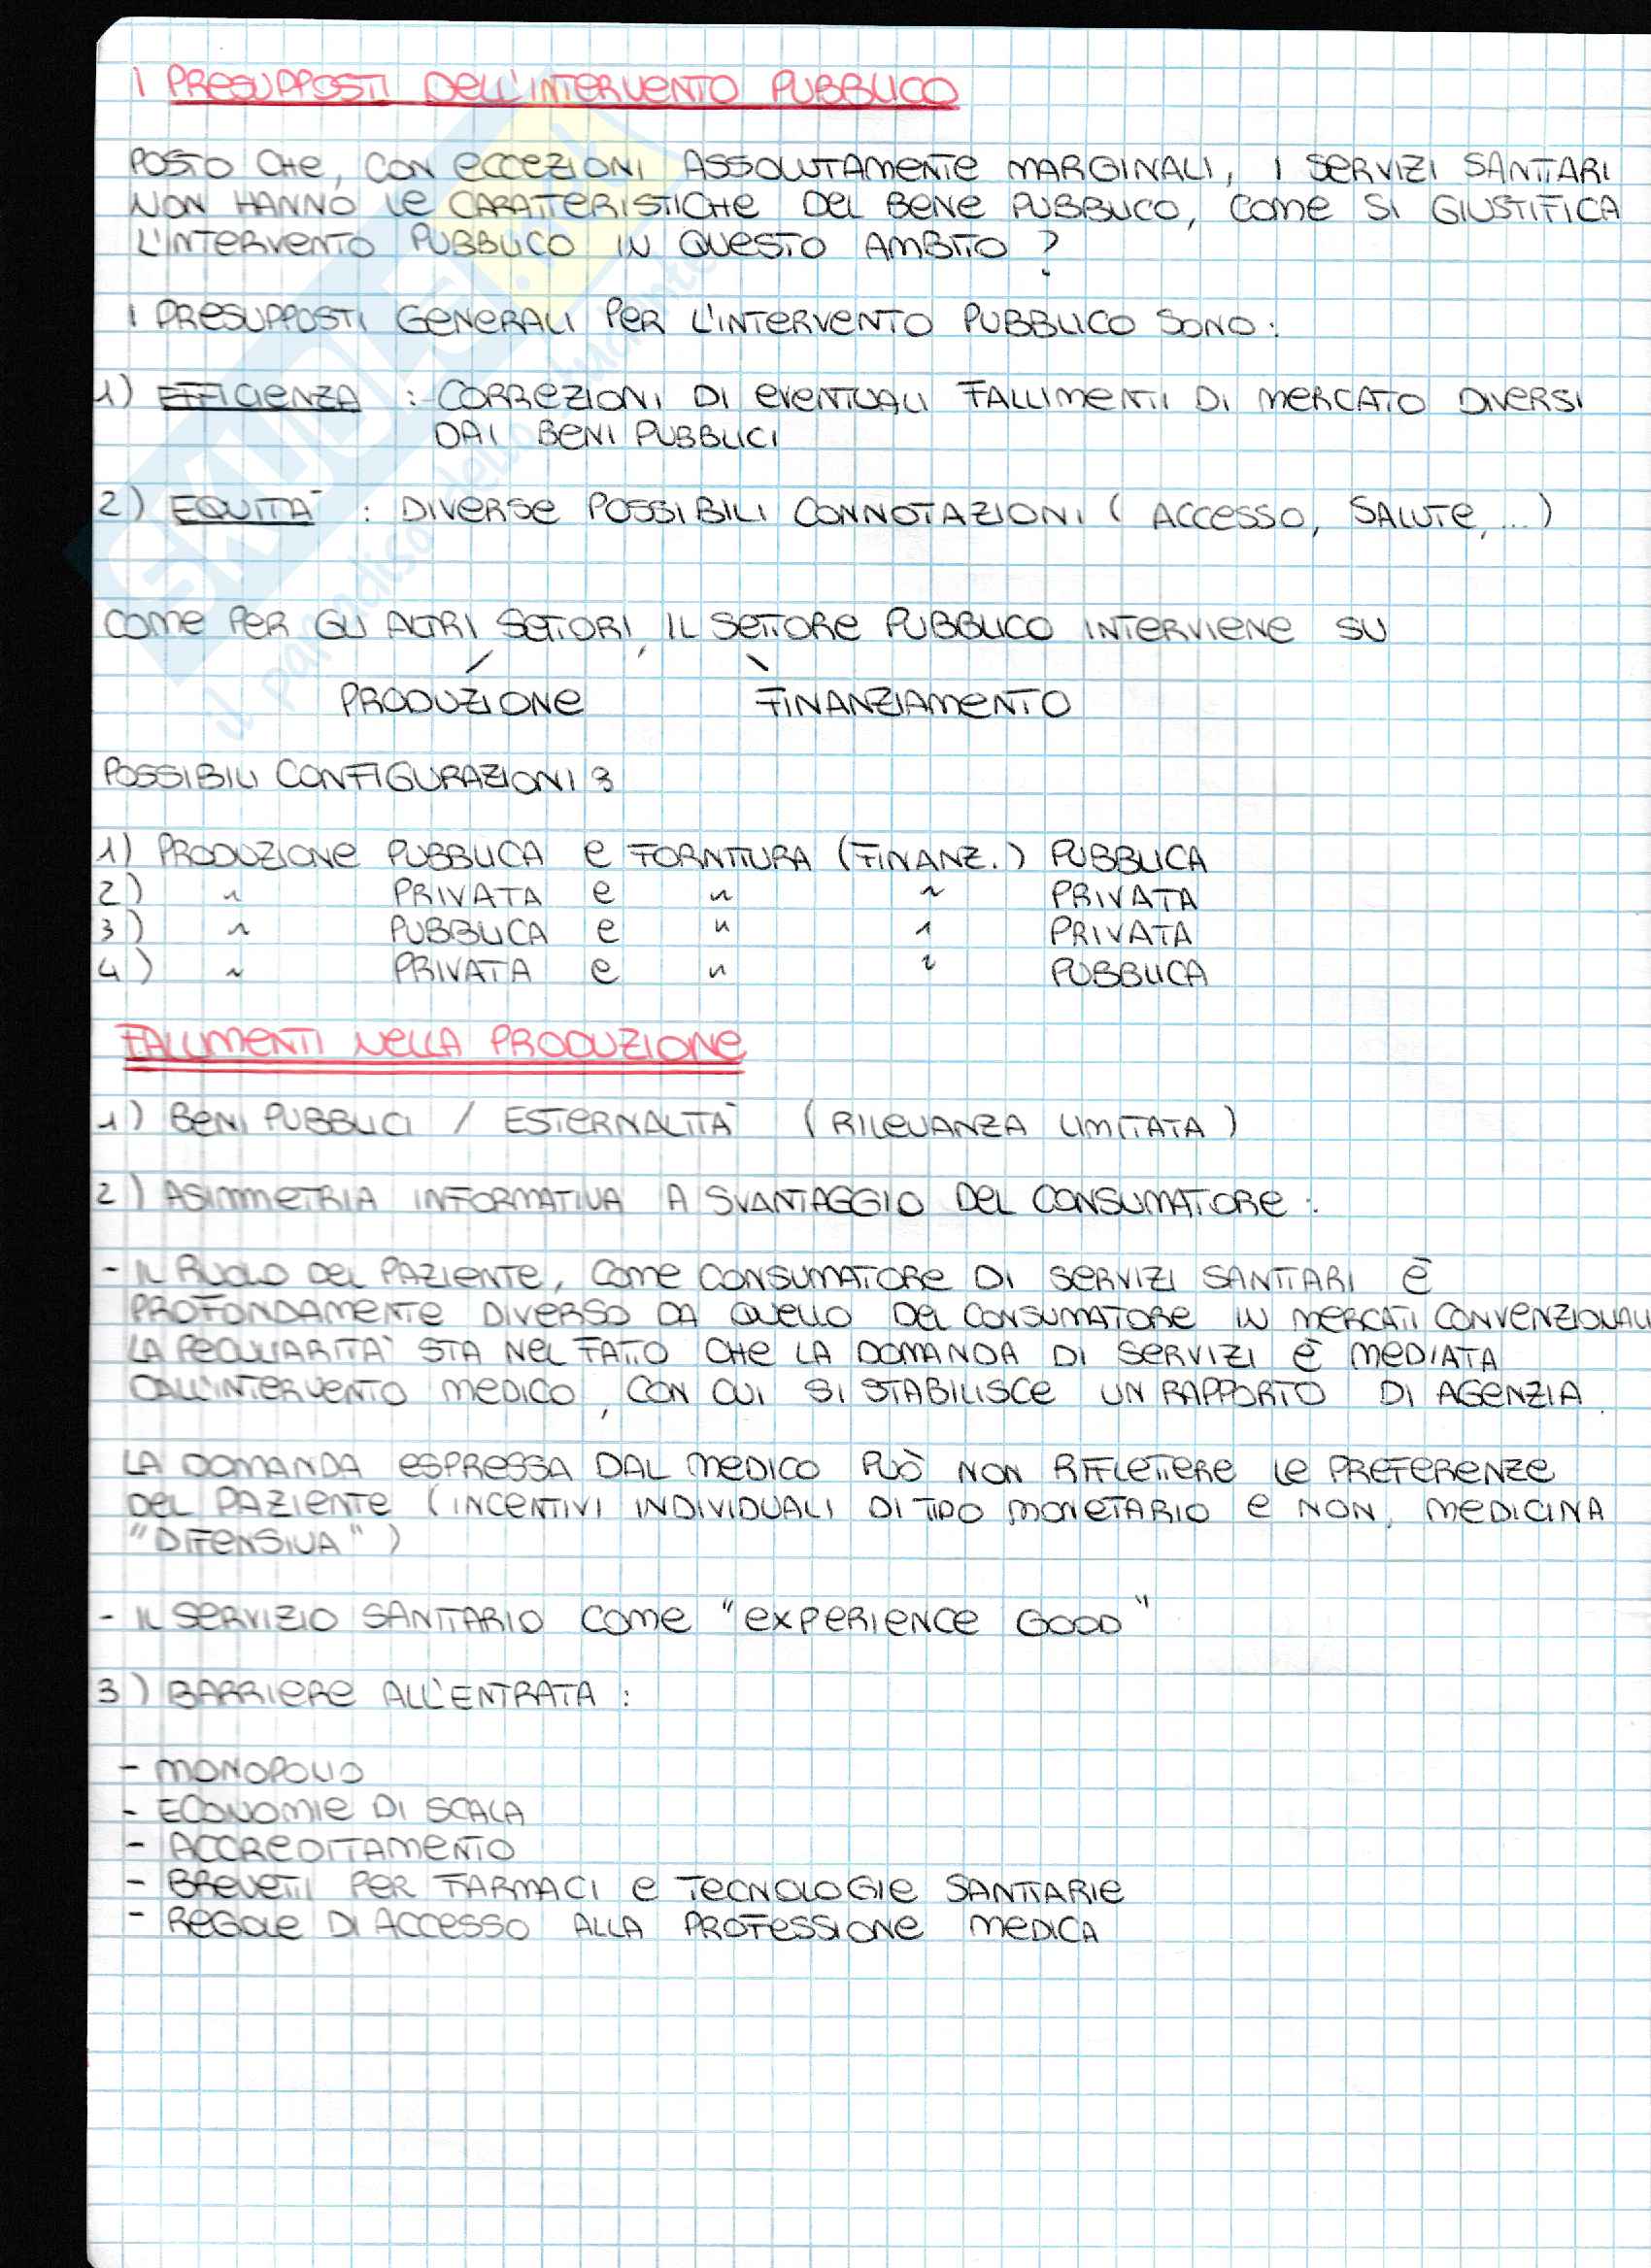 I PRESUPPOSTI DELL'INTERVENTO PUBBLICO
POSTO CHE, CON ECCEZIONI ASSOLUTAMENTE MARGINALI, I SERVIZI SANITARI
NON HANNO LE CARATTERISTICHE DEL BENE PUBBLICO, COME SI GIUSTIFICA
L'INTERVENTO PUBBLICO IN QUESTO AMBITO ?
I PRESUPPOSTI GENERALI PER L'INTERVENTO PUBBLICO SONO:
1) EFFICIENZA : CORREZIONI DI EVENTUALI FALLIMENTI DI MERCATO DIVERSI
DAI BENI PUBBLICI
2) EQUITÀ : DIVERSE POSSIBILI CONNOTAZIONI ( ACCESSO, SALUTE, ...)
COME PER GLI ALTRI SETTORI, IL SETTORE PUBBLICO INTERVIENE SU
PRODUZIONE FINANZIAMENTO
POSSIBILI CONFIGURAZIONI
1) PRODUZIONE PUBBLICA E FORNITURA (FINANZ.) PUBBLICA
2) " PRIVATA E " " PRIVATA
3) " PUBBLICA E " " PRIVATA
4) " PRIVATA E " " PUBBLICA
FALLIMENTI NELLA PRODUZIONE
1) BENI PUBBLICI / ESTERNALITÀ (RILEVANZA LIMITATA)
2) ASIMMETRIA INFORMATIVA A SVANTAGGIO DEL CONSUMATORE :
- IL RUOLO DEL PAZIENTE, COME CONSUMATORE DI SERVIZI SANITARI È
PROFONDAMENTE DIVERSO DA QUELLO DEL CONSUMATORE IN MERCATI CONVENZIONALI
LA PECULIARITÀ STA NEL FATTO CHE LA DOMANDA DI SERVIZI È MEDIATA
DALL'INTERVENTO MEDICO, CON CUI SI STABILISCE UN RAPPORTO DI AGENZIA.
LA DOMANDA ESPRESSA DAL MEDICO PUÒ NON RIFLETTERE LE PREFERENZE
DEL PAZIENTE (INCENTIVI INDIVIDUALI DI TIPO MONETARIO E NON, MEDICINA
"DIFENSIVA")
- IL SERVIZIO SANITARIO COME "EXPERIENCE GOOD"
3) BARRIERE ALL'ENTRATA :
- MONOPOLIO
- ECONOMIE DI SCALA
- ACCREDITAMENTO
- BREVETTI PER FARMACI E TECNOLOGIE SANITARIE
- REGOLE DI ACCESSO ALLA PROFESSIONE MEDICA